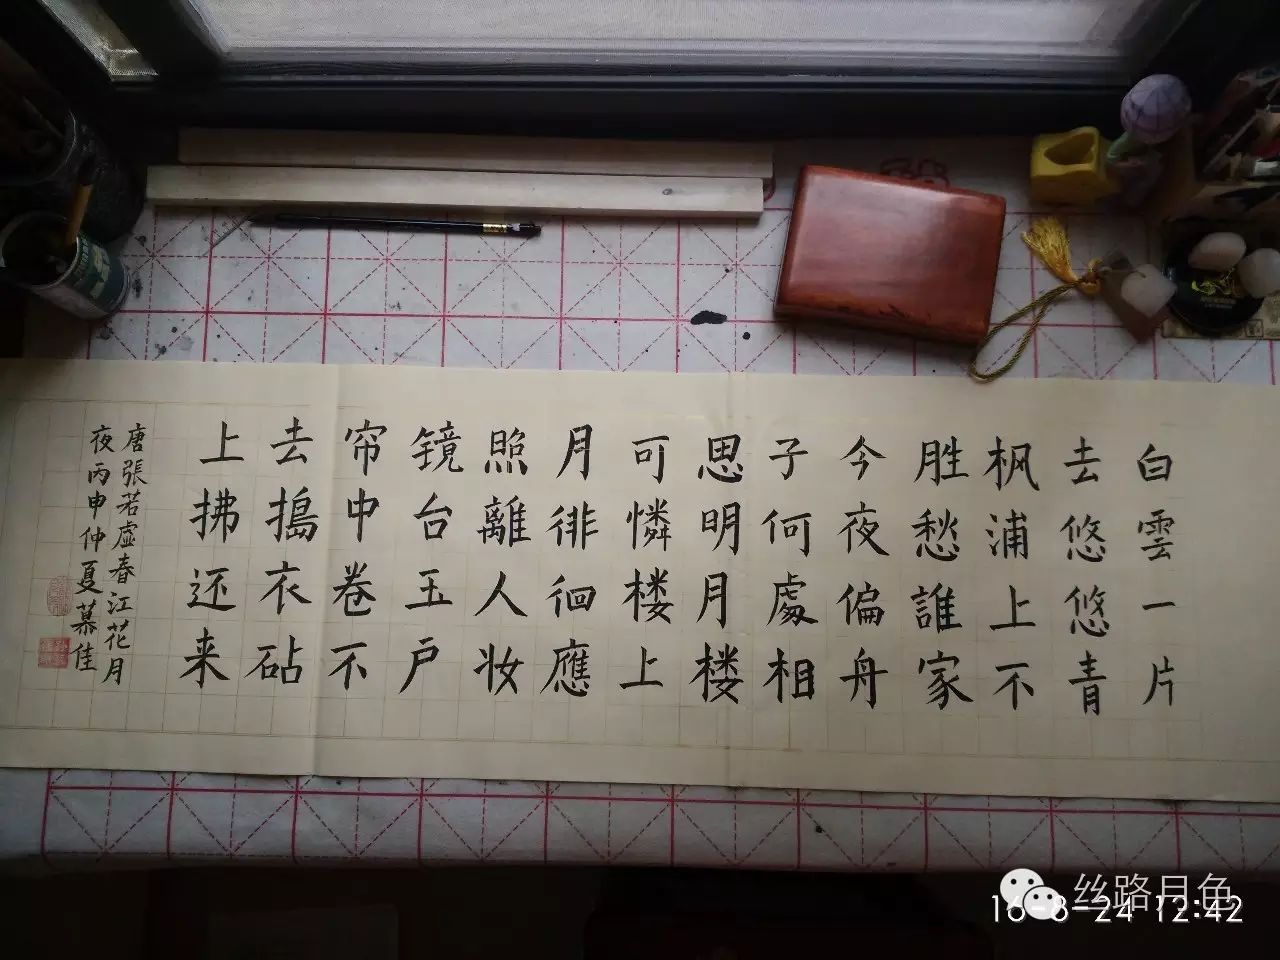 白雲一片
去悠悠青
枫浦上不
胜愁誰家
今夜偏舟
子何處相
思明月楼
可憐楼上
月徘徊應
照離人妆
镜台玉户
帘中卷不
去搗衣砧
上拂还来
唐張若虚春江花月
夜丙申仲夏慕佳
丝路月色
16-8-24 12:42